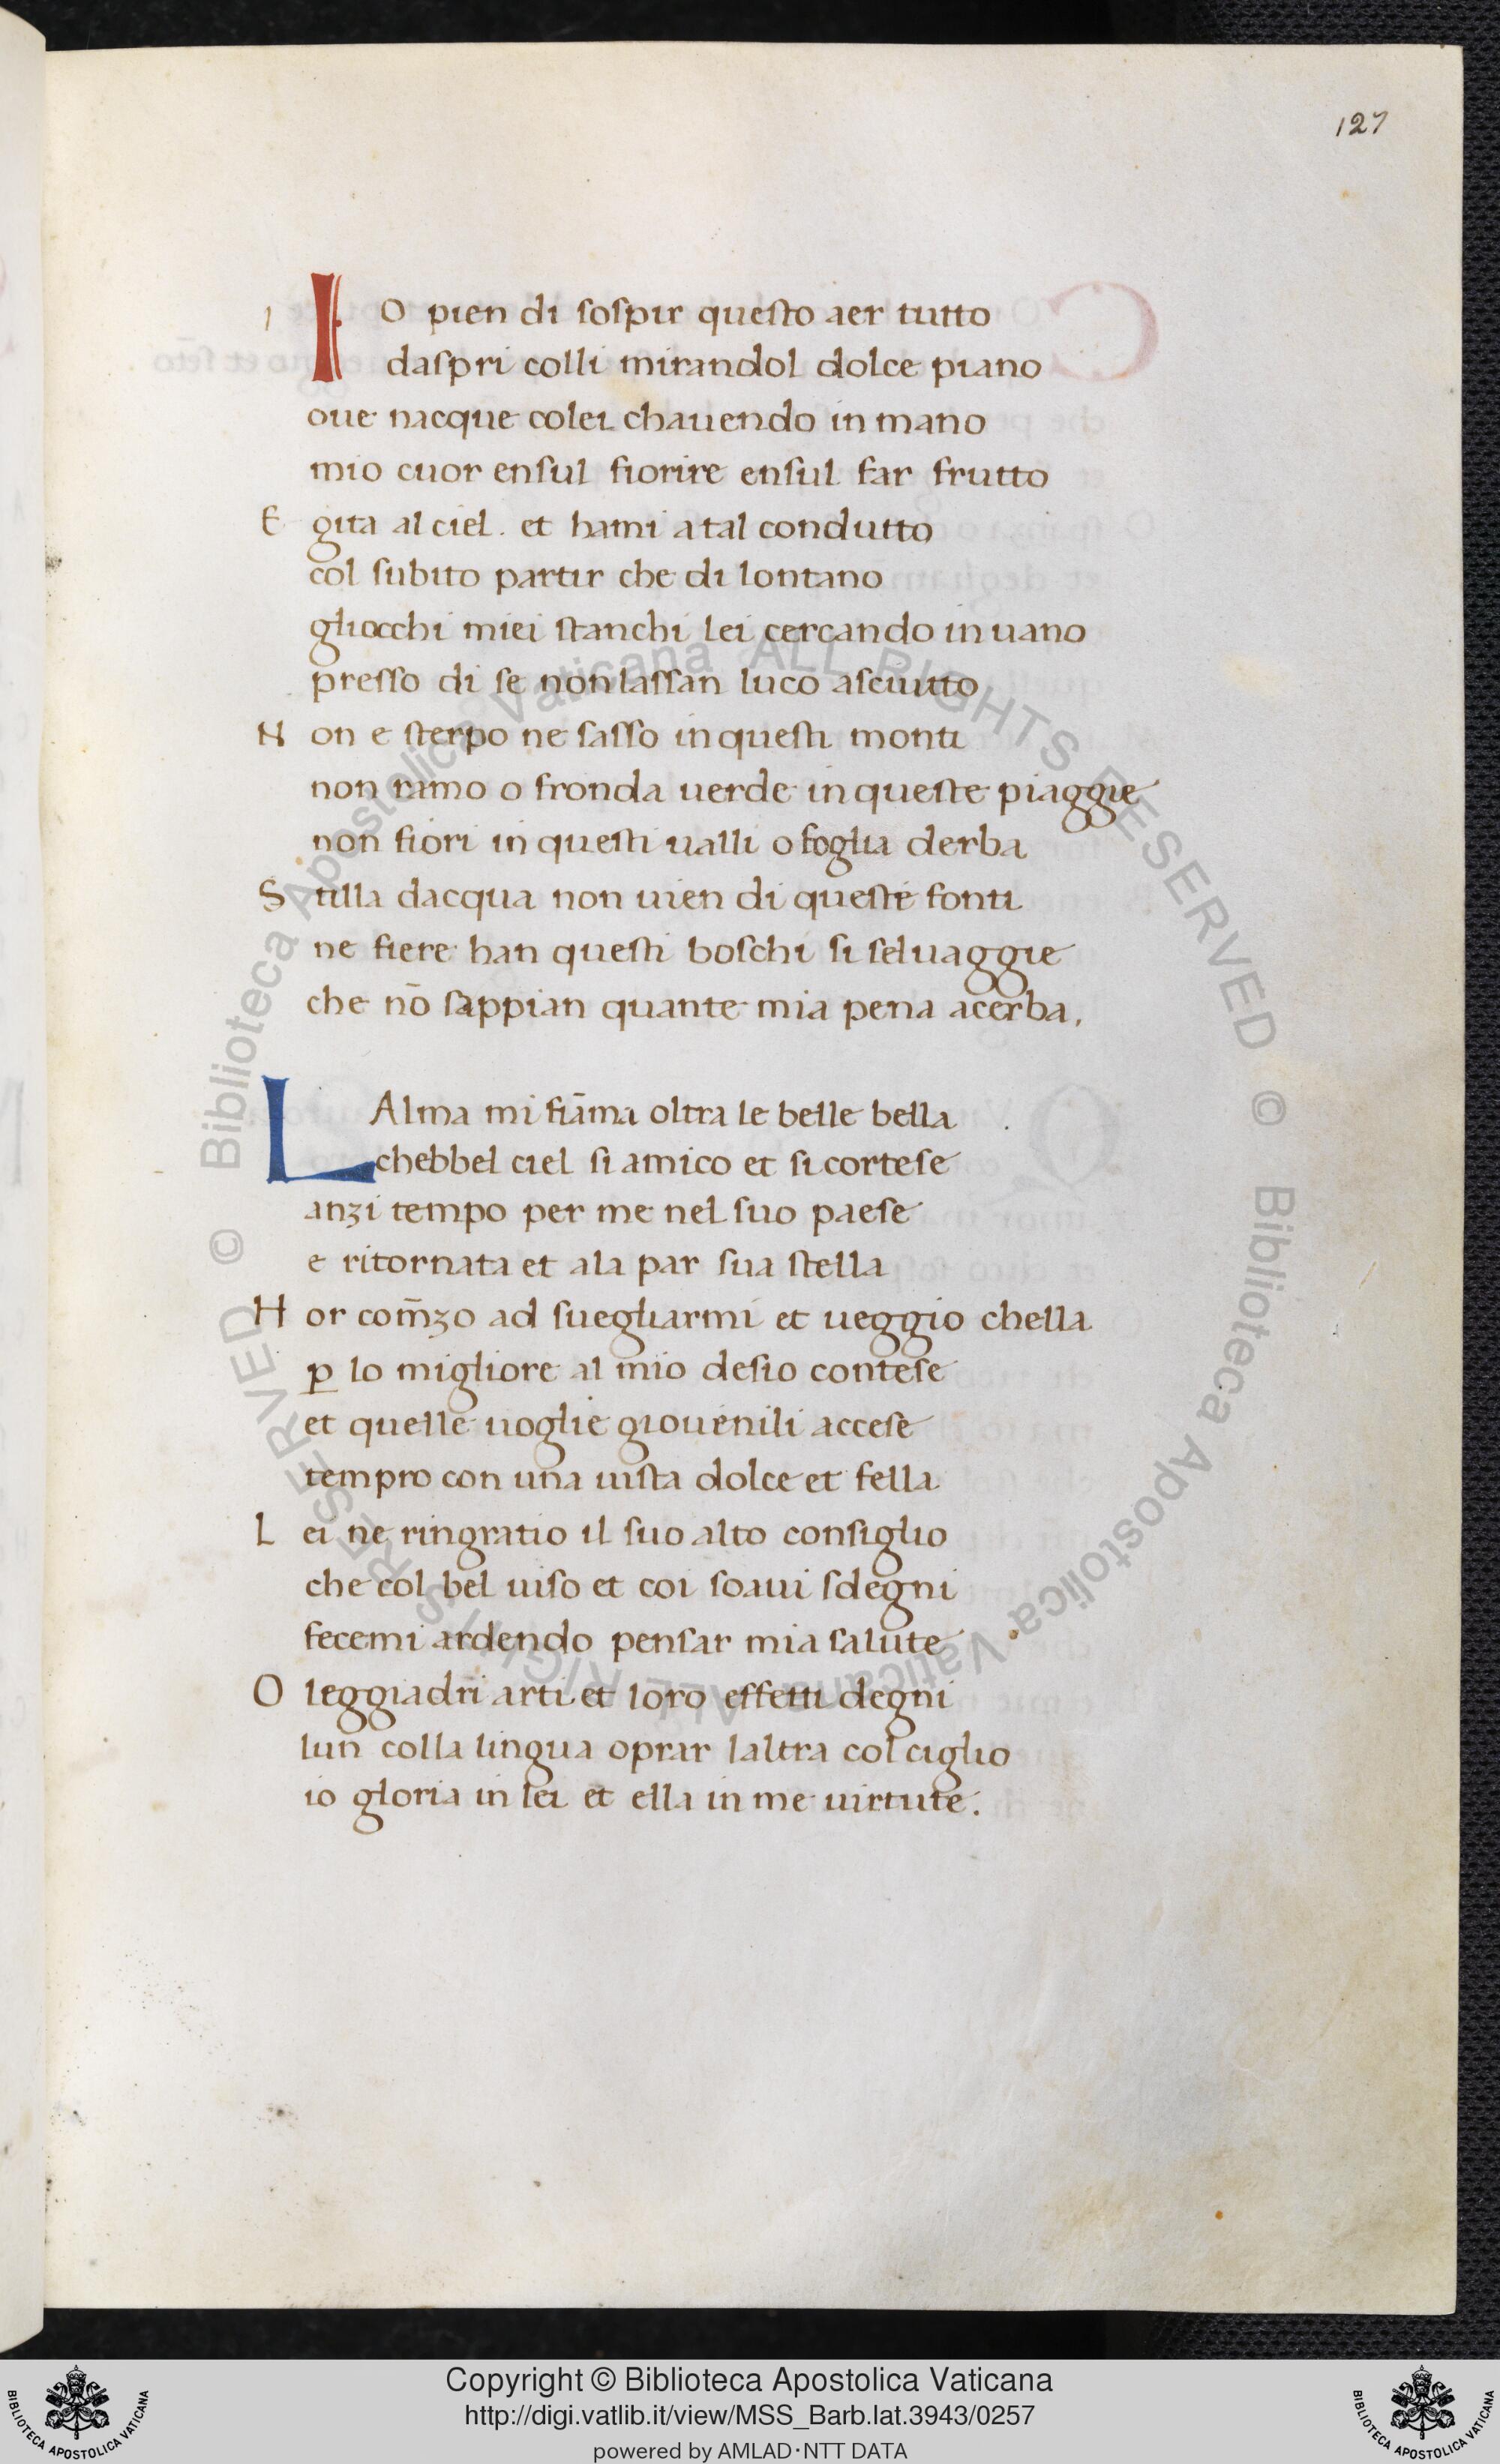 127
I O pien di sospir questo aer tutto
daspri colli mirandol dolce piano
oue nacque colei chauendo in mano
mio cuor ensul fiorire ensul far frutto
E gita al ciel. et hami a tal condutto
col subito partir che di lontano
gliocchi miei stanchi lei cercando in uano
presso di se non lassan luco asciutto
N on e sterpo ne sasso in questi monti
non ramo o fronda uerde in queste piaggie
non fiori in questi ualli o foglia derba
S tilla dacqua non uien di queste fonti
ne fiere han questi boschi si seluaggie
che nō sappian quante mia pena acerba.
L Alma mi fiāma oltra le belle bella
chebbel ciel si amico et si cortese
anzi tempo per me nel suo paese
e ritornata et ala par sua stella
H or com̄zo ad suegliarmi et ueggio chella
ꝑ lo migliore al mio desio contese
et quelle uoglie giouenili accese
tempro con una uista dolce et fella
L ei ne ringratio il suo alto consiglio
che col bel uiso et coi soaui sdegni
fecemi ardendo pensar mia salute
O leggiadri arti et loro effetti degni
lun colla lingua oprar laltra col ciglio
io gloria in lei et ella in me uirtute.
© Biblioteca Apostolica Vaticana ALL RIGHTS RESERVED © Biblioteca Apostolica Vaticana ALL RIGHTS RESERVED
Copyright © Biblioteca Apostolica Vaticana
http://digi.vatlib.it/view/MSS_Barb.lat.3943/0257
powered by AMLAD·NTT DATA
BIBLIOTECA APOSTOLICA VATICANA
BIBLIOTECA APOSTOLICA VATICANA